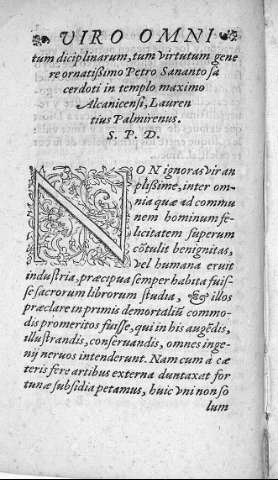 VIRO OMNI
tum diciplinarum, tum virtutum gene
re ornatißimo Petro Sananto sa
cerdoti in templo maximo
Alcanicensi, Lauren
tius Palmirenus.
S. P. D.
NON ignoras vir am
plißime, inter om-
nia quæ ad commu
nem hominum fe-
licitatem superum
cōtulit benignitas,
vel humana eruit
industria, præcipua semper habita fuis-
se sacrorum librorum studia, & illos
præclare in primis de mortaliū commo-
dis promeritos fuisse, qui in his augēdis,
illustrandis, conseruandis, omnes inge-
nij neruos intenderunt. Nam cum à cæ
teris fere artibus externa duntaxat for
tunæ subsidia petamus, huic vni non so
lum